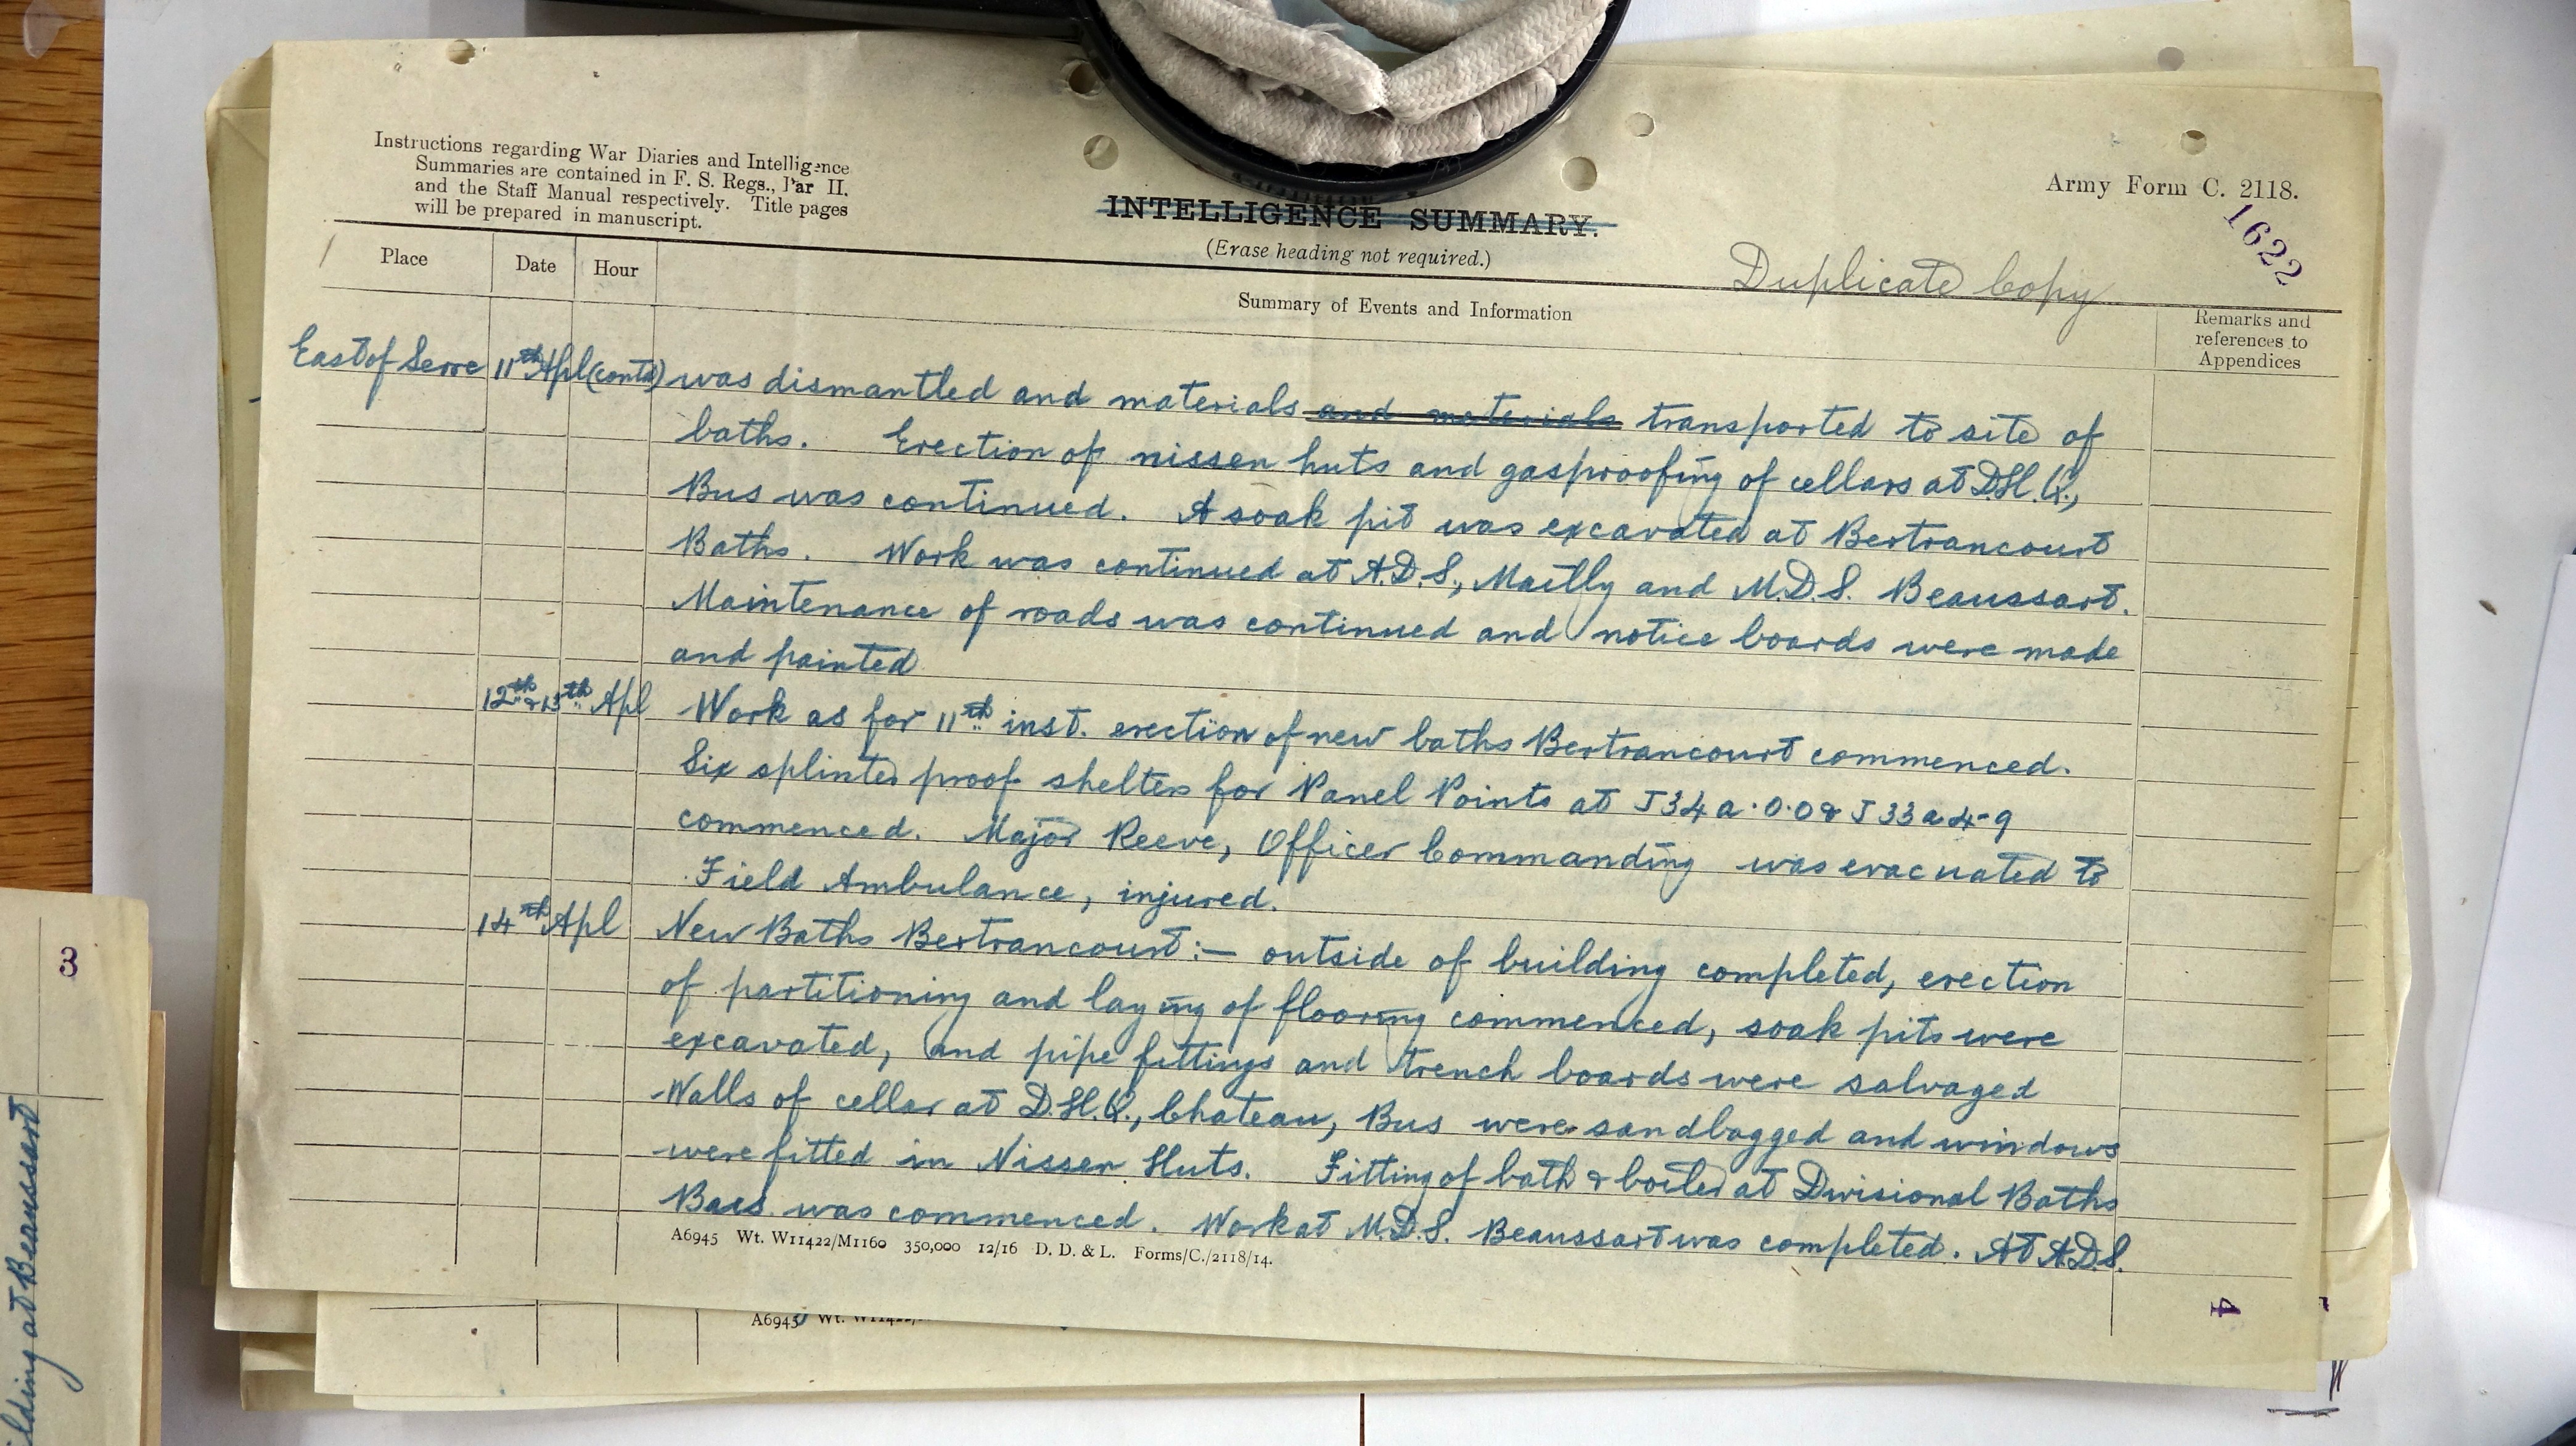 Instructions regarding War Diaries and Intelligence
Summaries are contained in F. S. Regs., Par II.
and the Staff Manual respectively. Title pages
will be prepared in manuscript.
INTELLIGENCE SUMMARY.
(Erase heading not required.)
Army Form C. 2118.
1622
Duplicate Copy
Place Date Hour
Summary of Events and Information
Remarks and
references to
Appendices
East of Serre 11th Apl (contd) was dismantled and materials and materials transported to site of
baths. Erection of nissen huts and gasproofing of cellars at D.H.Q.,
Bus was continued. A soak pit was excavated at Bertrancourt
Baths. Work was continued at A.D.S., Mailly and M.D.S. Beaussart.
Maintenance of roads was continued and notice boards were made
and painted
12th & 13th Apl Work as for 11th inst. erection of new baths Bertrancourt commenced.
Six splinter proof shelters for Panel Points at J34a.0.0 & J33a4-9
commenced. Major Reeve, Officer Commanding was evacuated to
Field Ambulance, injured.
14th Apl New Baths Bertrancourt:— outside of building completed, erection
of partitioning and laying of flooring commenced, soak pits were
excavated, and pipe fittings and trench boards were salvaged
Walls of cellar at D.H.Q., Chateau, Bus were sandbagged and windows
were fitted in Nissen Huts. Fitting of bath & boiler at Divisional Baths
was commenced. Work at M.D.S. Beaussart was completed. At A.D.S.
A6945 Wt. W11422/M1160 350,000 12/16 D. D. & L. Forms/C./2118/14.
4
A6945 Wt.
3
ilding at Beaussart